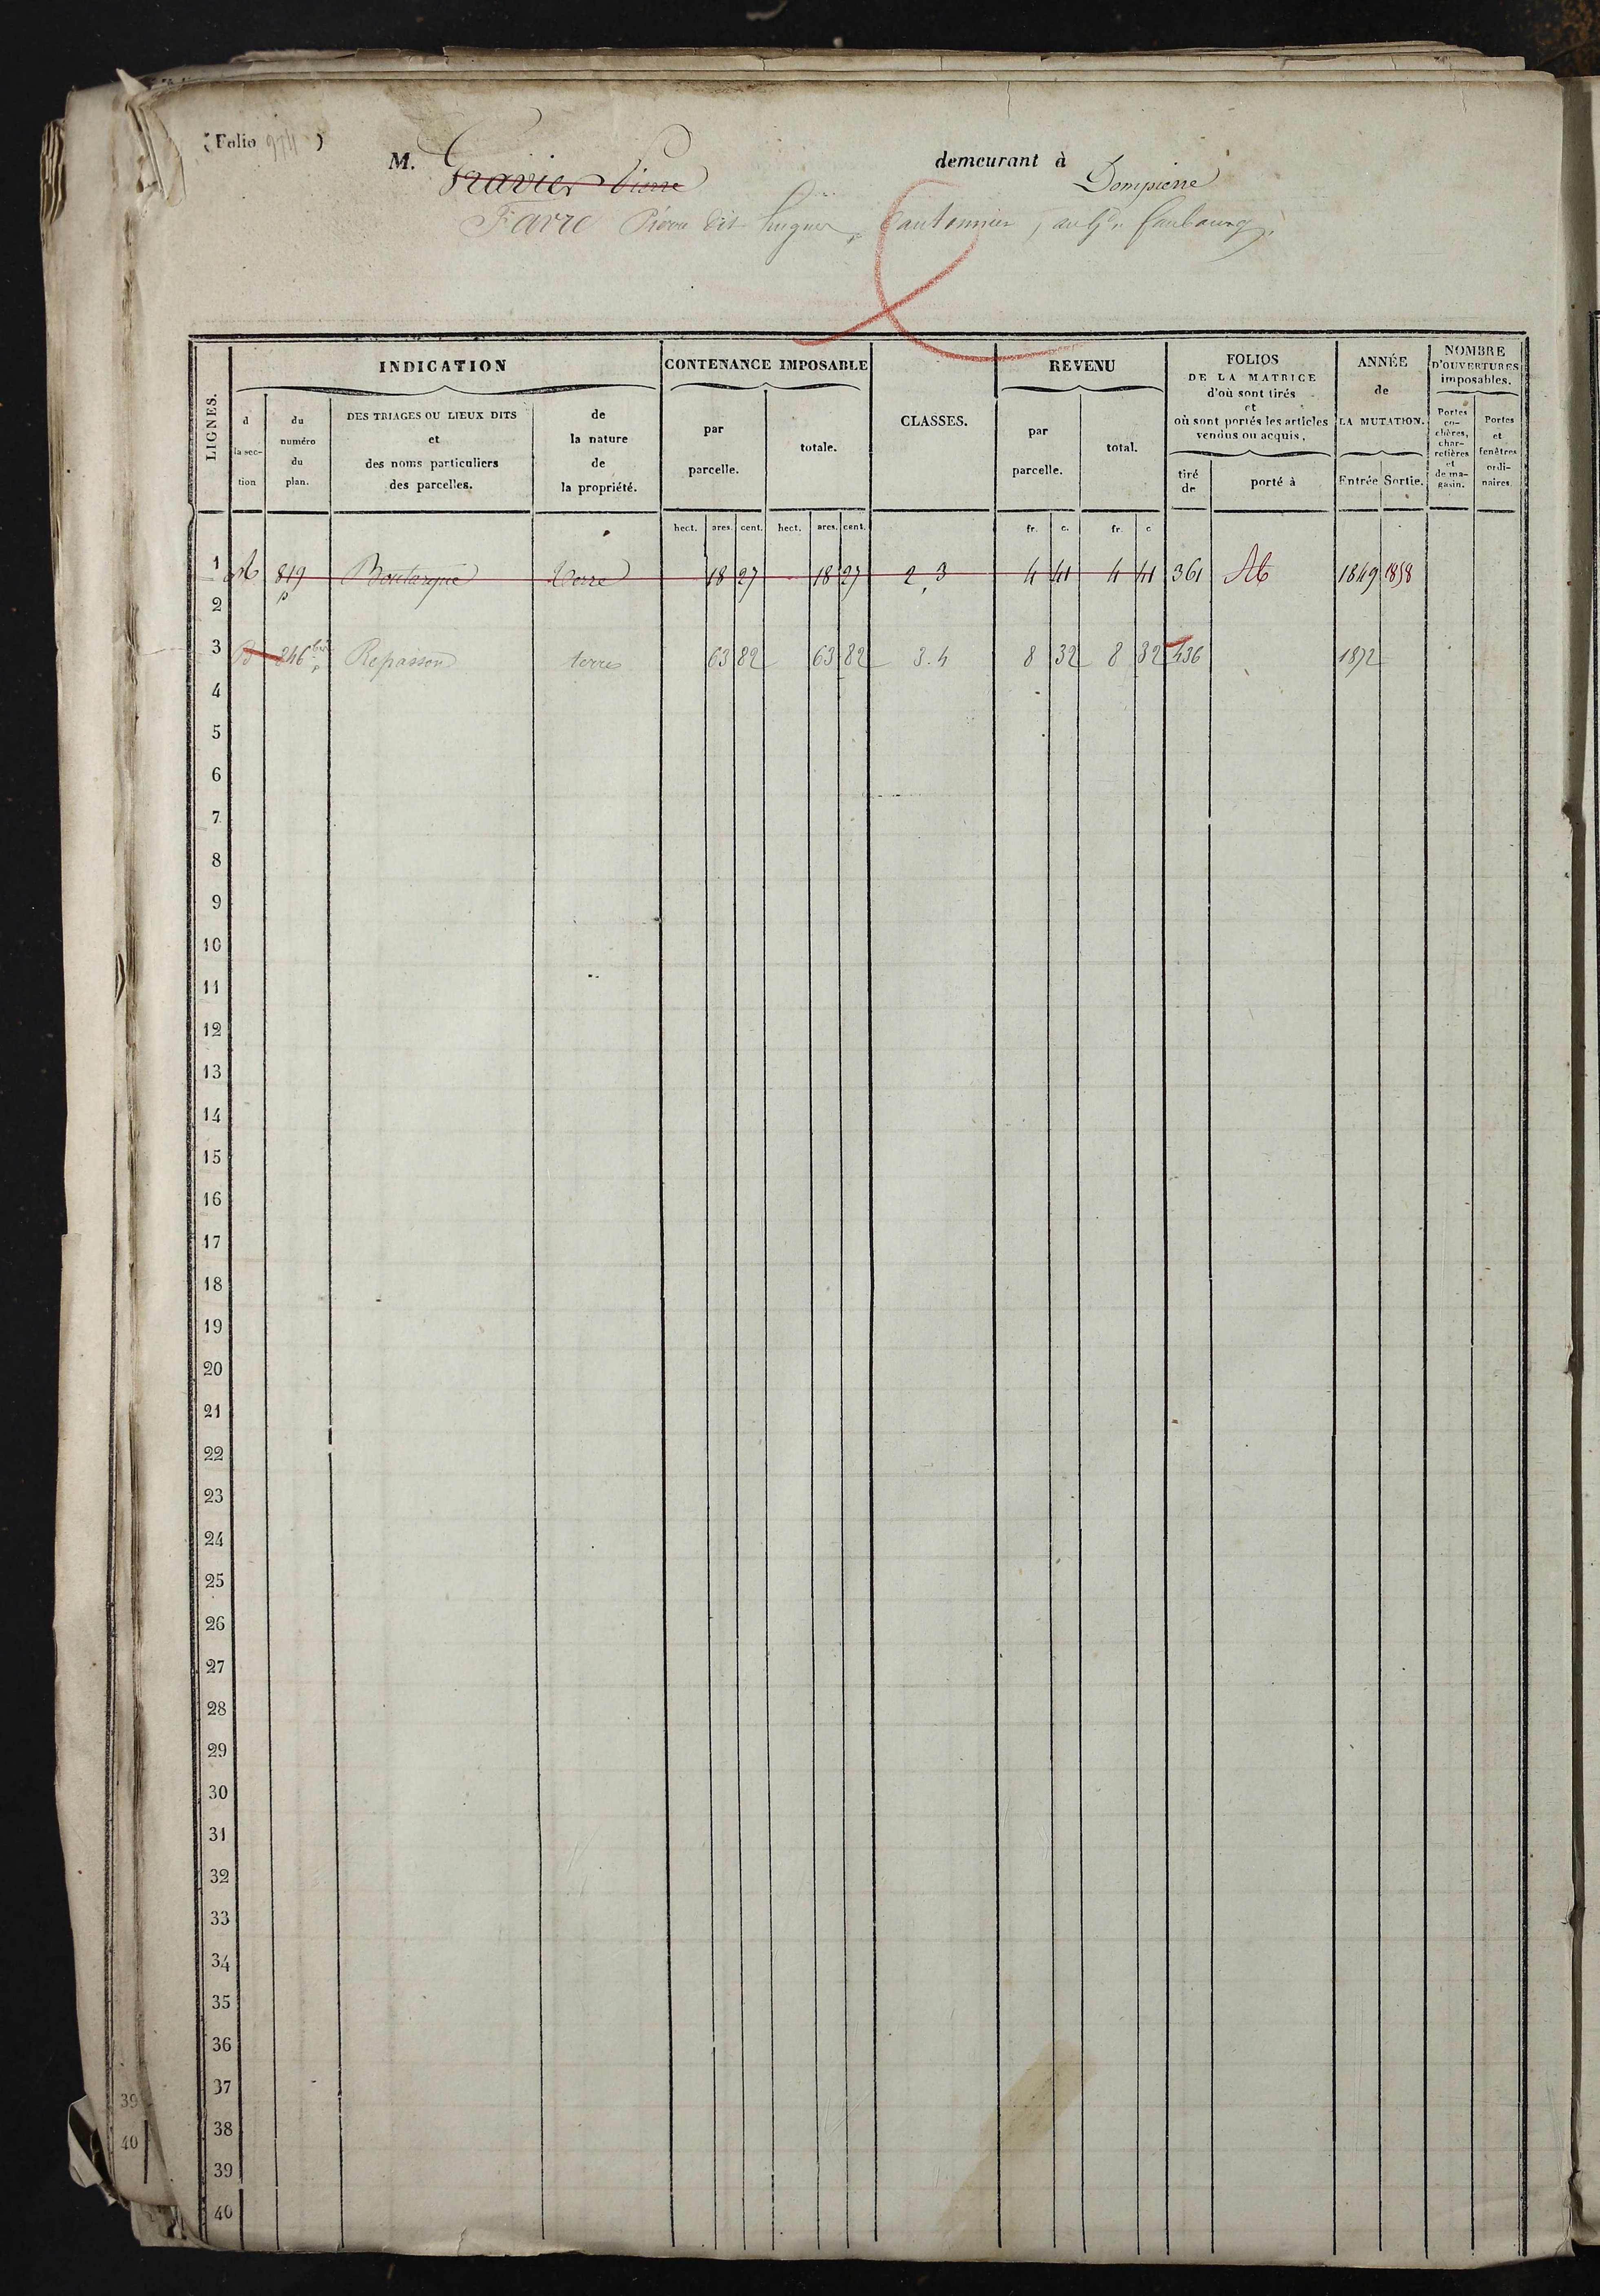 (Folio 974)
M. Gravier Pierre demeurant à Dompierre
Favre Pierre dit Cantonnier, au faubourg
LIGNES.
INDICATION
d la section
du numéro du plan.
DES TRIAGES OU LIEUX DITS et des noms particuliers des parcelles.
de la nature de la propriété.
CONTENANCE IMPOSABLE
par parcelle.
totale.
CLASSES.
REVENU
par parcelle.
total.
FOLIOS DE LA MATRICE d'où sont tirés et où sont portés les articles vendus ou acquis.
tiré de
porté à
ANNÉE de LA MUTATION.
Entrée Sortie.
NOMBRE D'OUVERTURES imposables.
Portes cochères, charretières et de magasin.
Portes et fenêtres ordinaires.
hect. ares. cent. hect. ares. cent. fr. c. fr. c
1 A 819 p Boutarque Terre 18 27 18 27 2, 3 4 41 4 41 361 1849 1858
2
3 B 246 bis p Repasson terres 63 82 63 82 3.4 8 32 8 32 436 1872
4
5
6
7
8
9
10
11
12
13
14
15
16
17
18
19
20
21
22
23
24
25
26
27
28
29
30
31
32
33
34
35
36
37
38
39
40
39
40